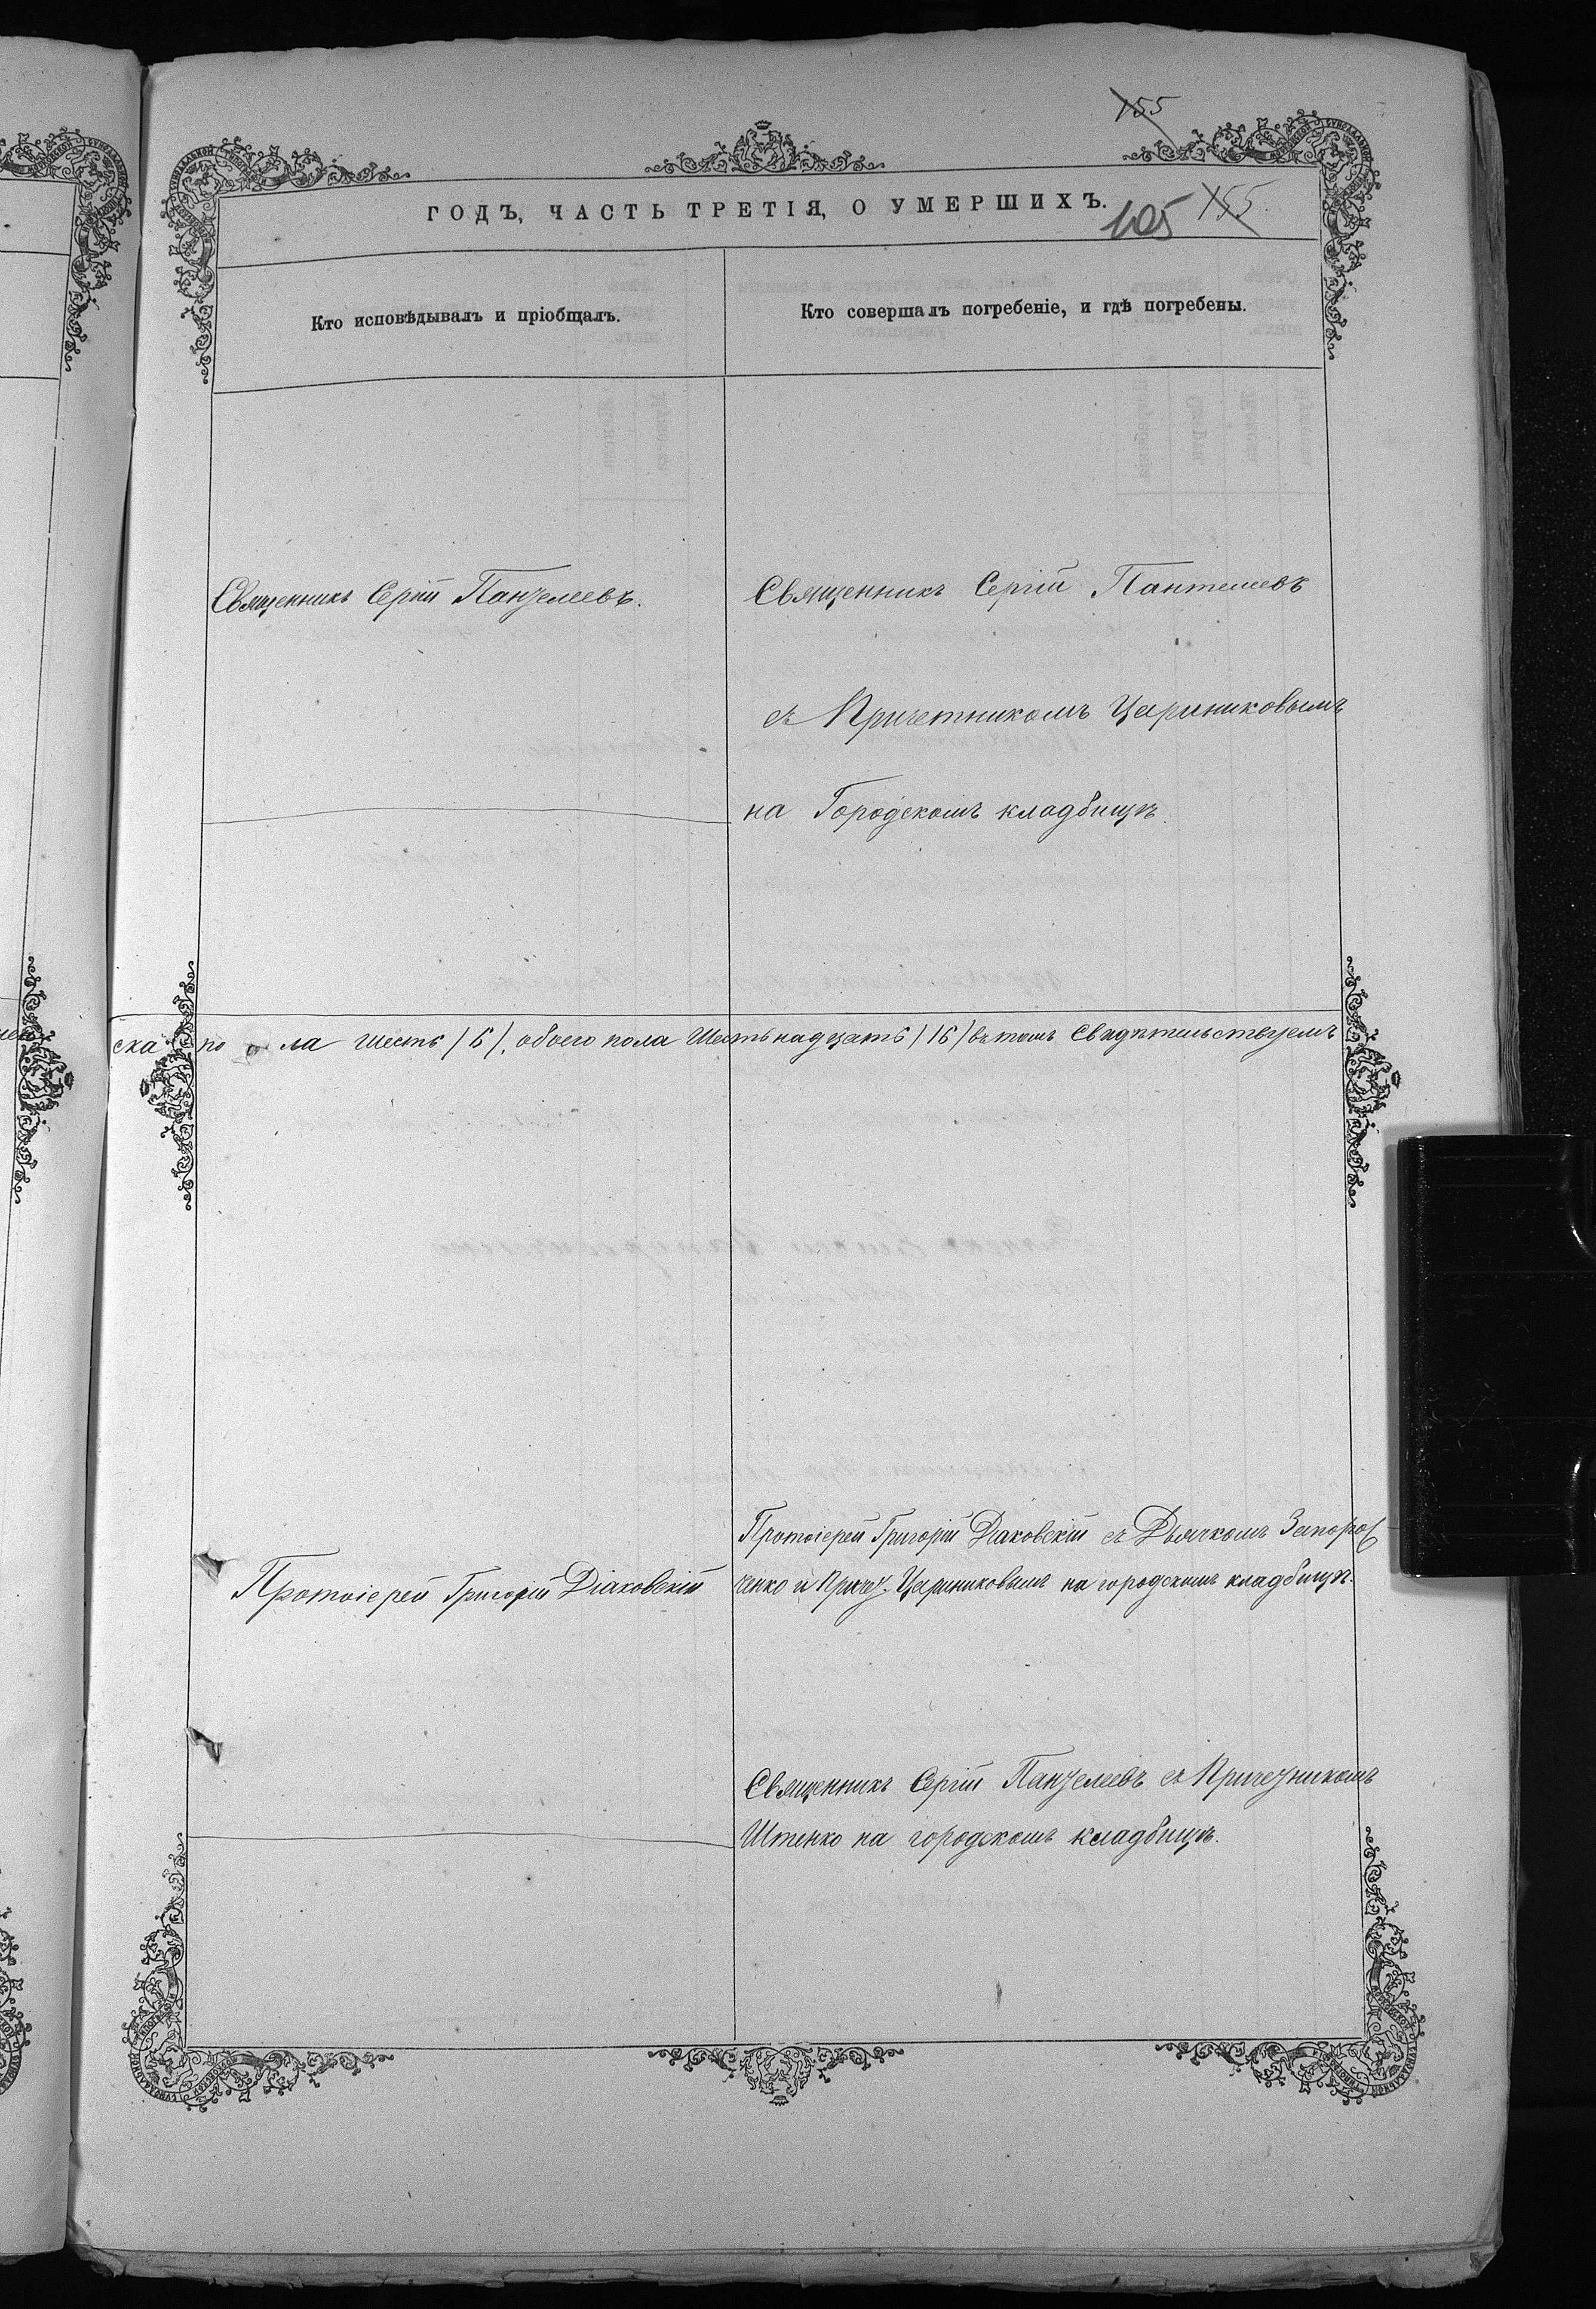 155
ГОДЪ, ЧАСТЬ ТРЕТІЯ, О УМЕРШИХЪ.
105 155.
Кто исповѣдывалъ и пріобщалъ.
Кто совершалъ погребеніе, и гдѣ погребены.
Священникъ Сергій Пантелеевъ.
Священникъ Сергій Пантелеевъ
съ Причетникомъ Цариниковымъ
на Городскомъ кладбищѣ.
ска по ла шесть /6/, обоего пола Шестьнадцать /16/ въ томъ Свидѣтельствуемъ
Протоіерей Григорій Діаковскій
Протоіерей Григорій Діаковскій съ Дьячкомъ Запорос
ченко и Причет. Цариниковымъ на городскомъ кладбищѣ.
Священникъ Сергій Пантелеевъ съ Причетникомъ
Штенко на городскомъ кладбищѣ.